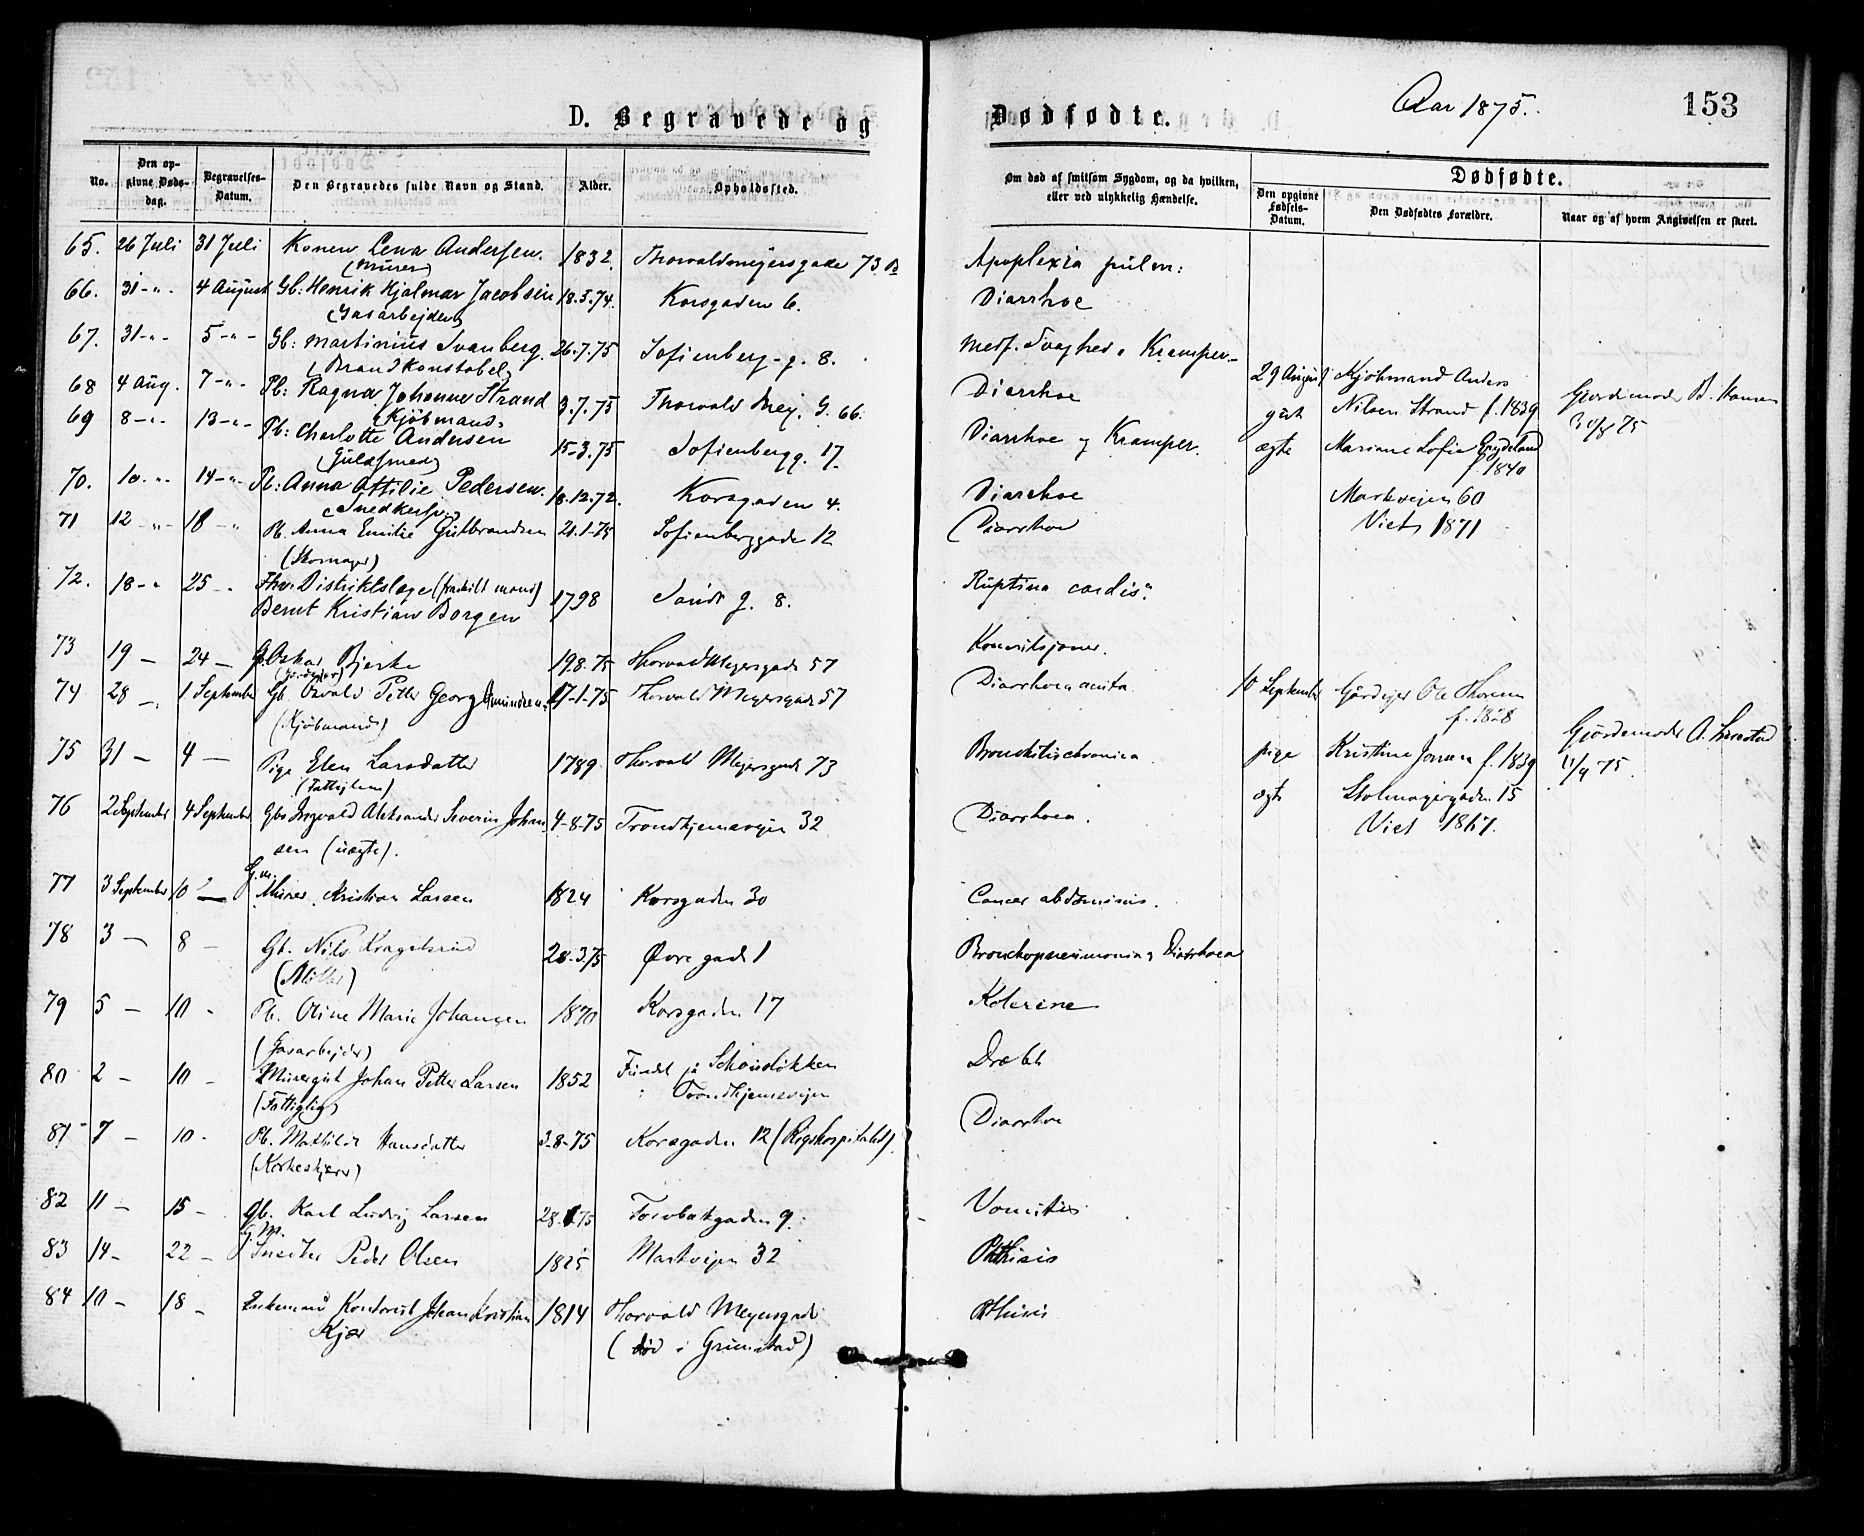 D. Begravede og
Dødfødte.
Aar 1875.
153
No.
Den opgivne Dødsdag.
Begravelses-Datum.
Den Begravedes fulde Navn og Stand.
Alder.
Opholdssted.
Om død af smitsom Sygdom, og da hvilken, eller ved ulykkelig Hændelse.
Dødfødte.
Den opgivne Fødsels-Datum.
Den Dødfødtes Forældre.
Naar og af hvem Angivelsen er skeet.
65. 26 Juli 31 Juli Konen Lena Andersen. 1832. Thorvaldmeyersgade 73 B Apoplexia pulm:
(Murer)
66. 31 -"- 4 August Gb: Henrik Hjalmar Jacobsen 18.3.74. Korsgaden 6. Diarrhoe
(Gasarbejder)
67. 31 -"- 5 -"- Gb: Martinius Svanberg. 26.7.75 Sofienberg-g. 8. Medf. Svaghed o Kramper
(Brandkonstabel)
68 4 Aug. 7 -"- Pb: Ragna Johanne Strand 3.7.75 Thorvald Mey. G. 66. Diarrhoe
(Kjøbmand)
69 8 -"- 13 -"- Pb: Charlotte Andersen 15-3.75 Sofienbergg. 17. Diarrhoe og Kramper.
(Guldsmed)
70. 10 -"- 14 -"- Pb: Anna Ottilie Pedersen. 18.12.72. Korsgaden 4. Diarrhoe
(Snedkersv.)
71 12 -"- 18 -"- Pb. Anna Emilie Gulbrandsen 21.1-75 Sofienberggade 12 Diarrhoe
(Skomager)
72. 18 -"- 25 -"- Fhv. Distriktslæge (fraskilt mand)
Bernt Kristian Borgen 1798 Sandt g. 8. Ruptura cordis.
73 19 — 24 — G. Oskar Bjerke 19.8.75 Thorvald Meyersgade 57 Konvulsjoner.
(Gårdejer)
74 28 -"- 1 September Gb Osvald Petter Georg Amundsen 17-1-75 Thorvald Meyersgade 57 Diarrhoea acuta
(Kjøbmand)
75 31 — 4 — Pige Elen Larsdatter 1789 Thorvald Meyersgade 73 Bronchitis chronica
(Fattiglem)
76 2 September 4 September Gb. Ingvald Aleksander Severin Johan 4-8-75 Trondhjemsvejen 32 Diarrhoea.
sen (uægte).
77 3 September 10 — G.m. Murer Kristian Larsen 1824 Korsgaden 30 Cancer abdominis.
78 3 — 8 — Gb. Nils Kragelsrud 28.3.75 Øvregade 1 Bronchopneumonia og Diarrhoea
(Møller)
79 5 — 10 - Pb. Oline Marie Johansen 1870 Korsgaden 17 Kolerine
(Gasarbejder)
80 2 — 10 - Murergut Johan Petter Larsen 1852 Fundet på Schousløkken Dræbt
(Fattiglig) i Trondhjemsvejen
81 7 — 10 - Pb. Mathilde Hansdatter 3-8-75 Korsgaden 12 (Rigshospitalet). Diarrhoe
(Korkeskjærer)
82 11 — 15 — Gb. Karl Ludvig Larsen 28. 75 Torvbakgaden 9. Vomitus
83 14 — 22 — G.M. Snedker Peder Olsen 1825 Markvejen 32 Phthisis
84 10 — 18 — Enkemand Konduct. Johan Kristian 1814 Thorvald Meyersgade Phthisis
Kjær (død i Grimstad)
29 August Kjøbmand Anders Gjordemoder B. Hansen
gut Nilsen Strand f. 1839 30/8 75
ægte Mariane Sofie Engeland
f. 1840
Markvejen 60
Viet 1871
10 September Gårdejer Ole Thoresen
f. 1828
pige Kristine Jonsen f. 1839 Gjordemoder A.
ægte Stolmagergaden 15 11/9 75.
Viet 1867.